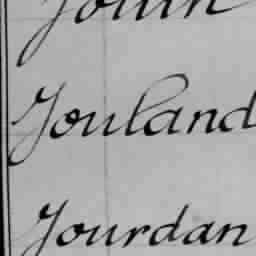 Jouland
Jourdan